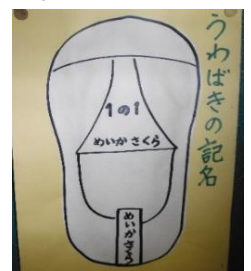 うわばきの記名
1の1
めいか さくら
めいが さくら